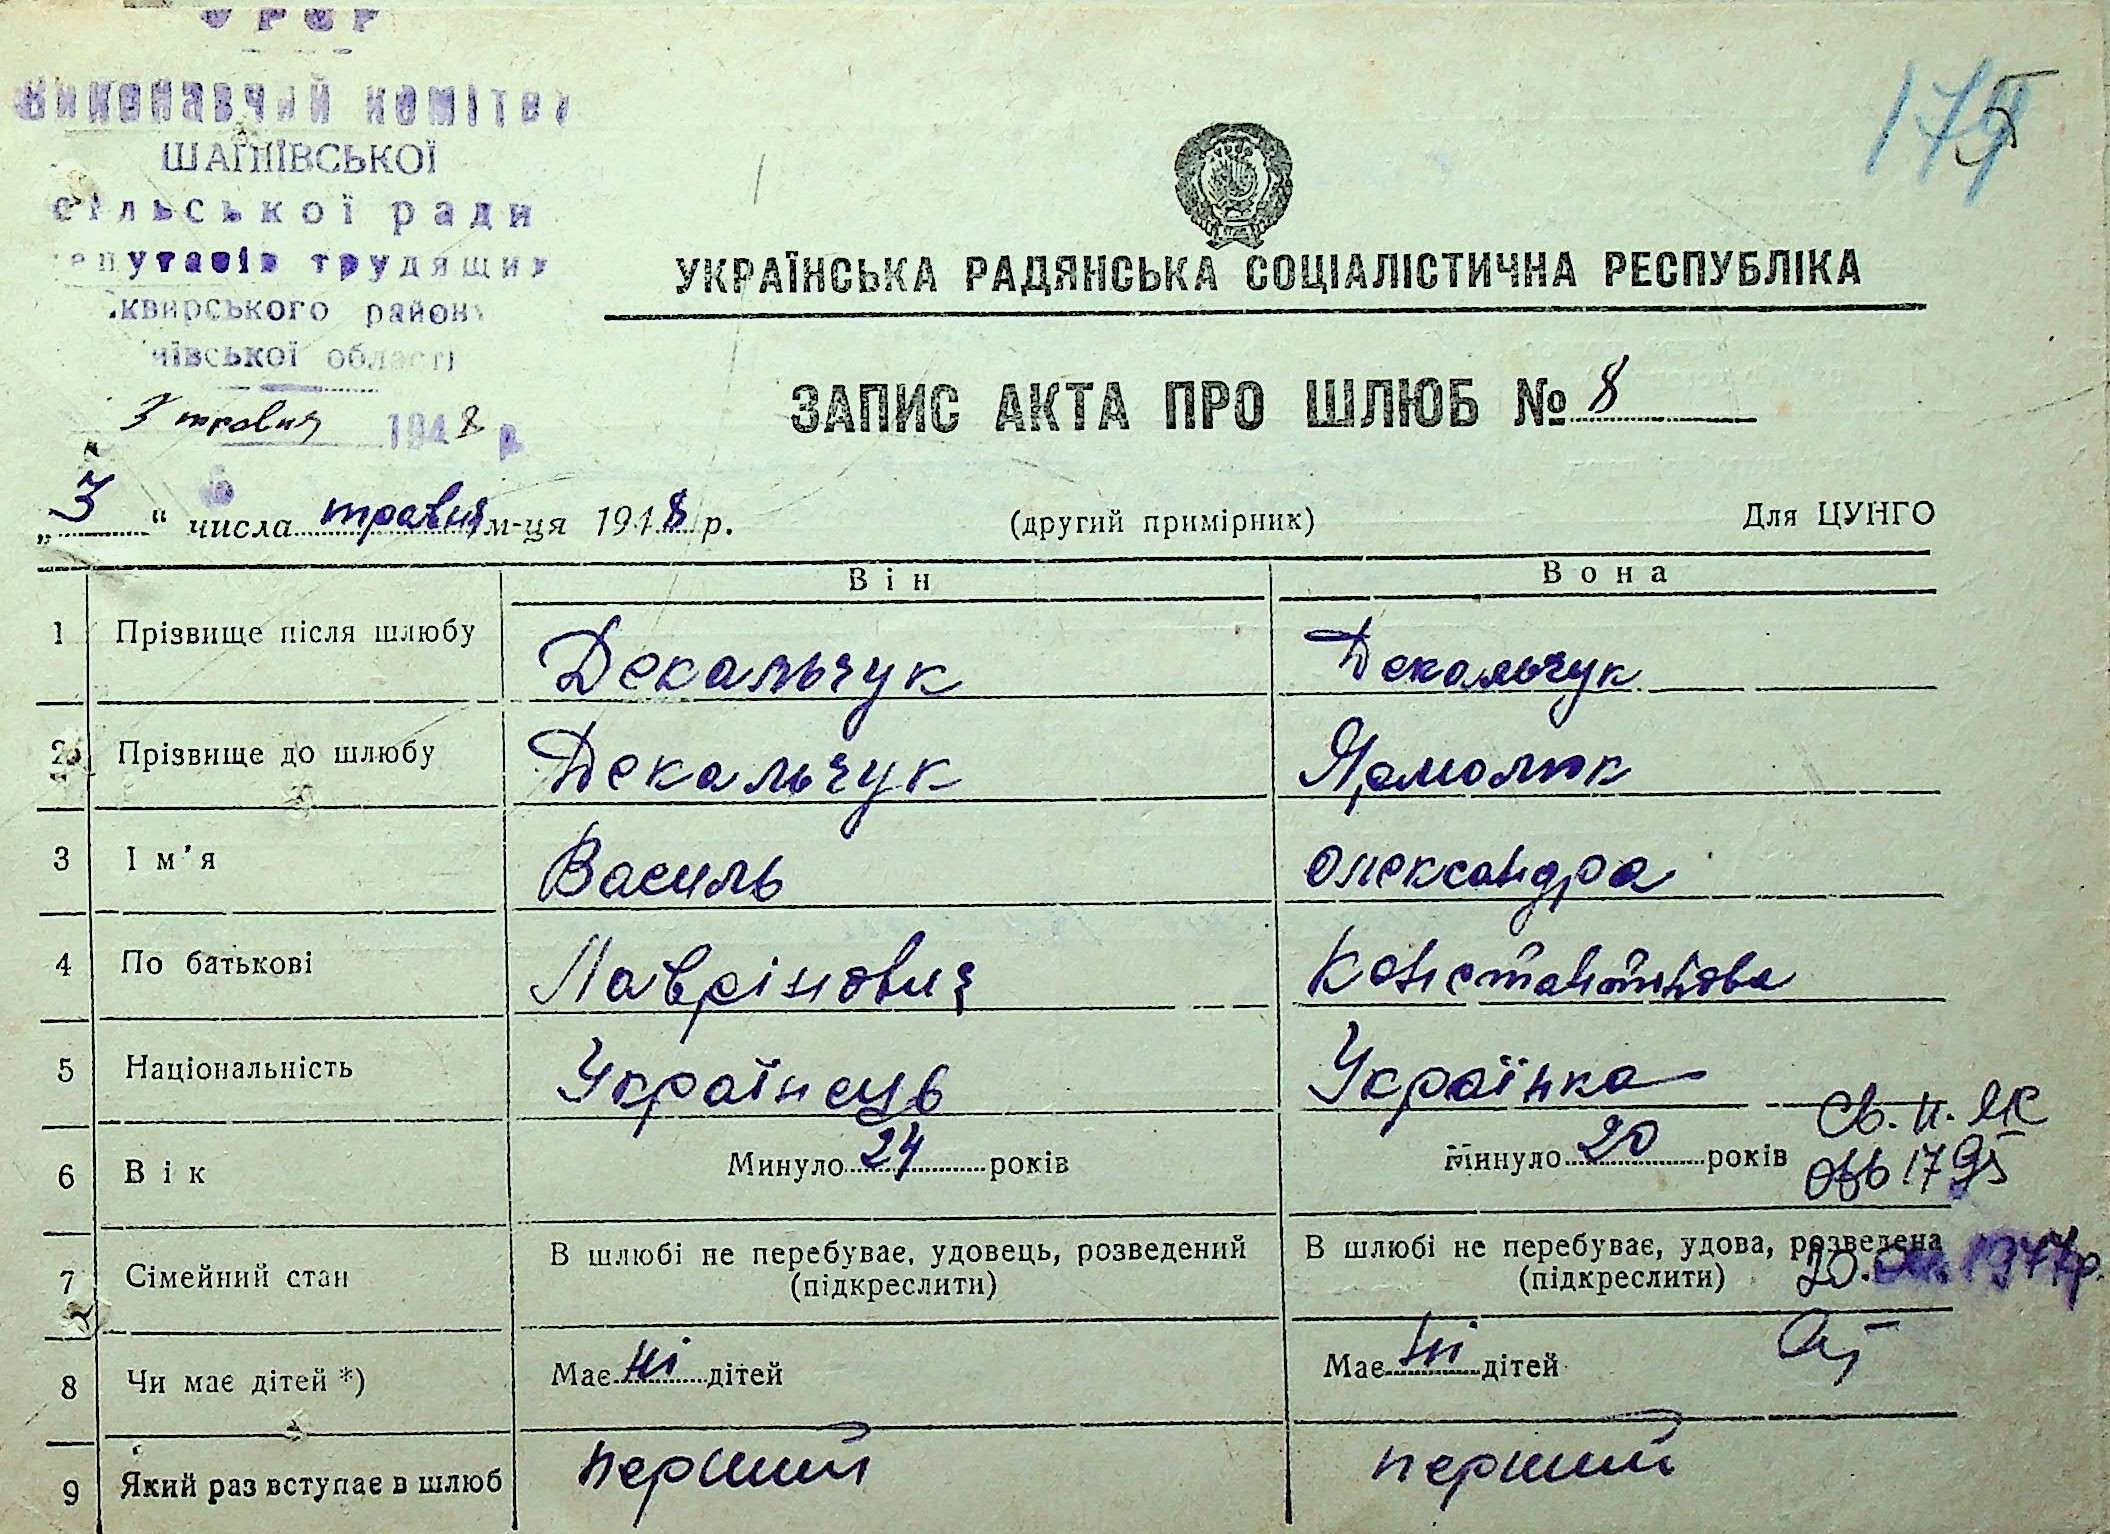 УРСР
Виконавчий комітет
ШАПІЇВСЬКОЇ
сільської ради
депутатів трудящих
Сквирського району
Київської області
3 травня 1948 р.
179
УКРАЇНСЬКА РАДЯНСЬКА СОЦІАЛІСТИЧНА РЕСПУБЛІКА
ЗАПИС АКТА ПРО ШЛЮБ № 8
„3“ числа травня м-ця 1948 р. (другий примірник) Для ЦУНГО
Він Вона
1 Прізвище після шлюбу Декальчук Декальчук
2 Прізвище до шлюбу Декальчук Ярмолюк
3 Ім'я Василь Олександра
4 По батькові Лаврінович Константінова
5 Національність Українець Українка
Св. п. ЯЄ
6 Вік Минуло 24 років Минуло 20 років 1795
7 Сімейний стан В шлюбі не перебуває, удовець, розведений (підкреслити) В шлюбі не перебуває, удова, розведена (підкреслити)
20. 1977р.
8 Чи має дітей *) Має ні дітей Має ні дітей
9 Який раз вступає в шлюб перший перший